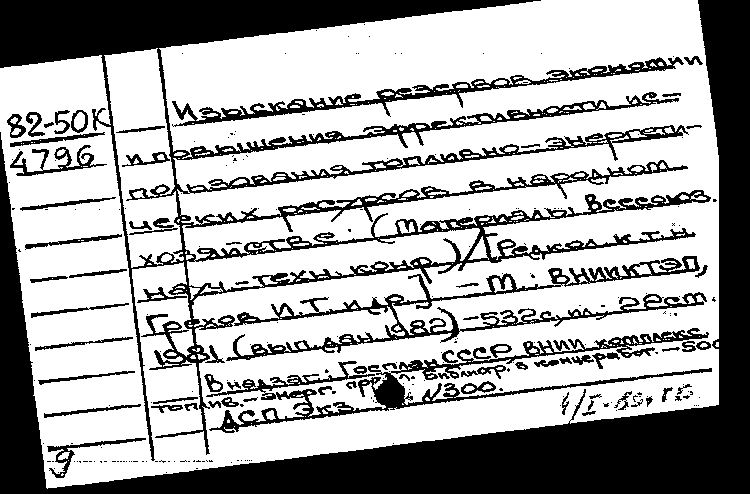 82-50К
4796
Изыскание резервов экономии
и повышения эффективности ис-
пользования топливно-энергети-
ческих ресурсов в народном
хозяйстве. (Материалы Всесоюз.
науч.-техн. конф.) / [Редкол. к.т.н.
Грехов И.Т. и др.] - М.: ВНИИКТЭП,
1981 (вып. дан. 1982) - 532с., ил.; 22см.
В надзаг.: Госплан СССР, ВНИИ комплекс.
топлив.-энерг. Библиогр. в конце работ. - 500
ДСП Экз. N300.
9